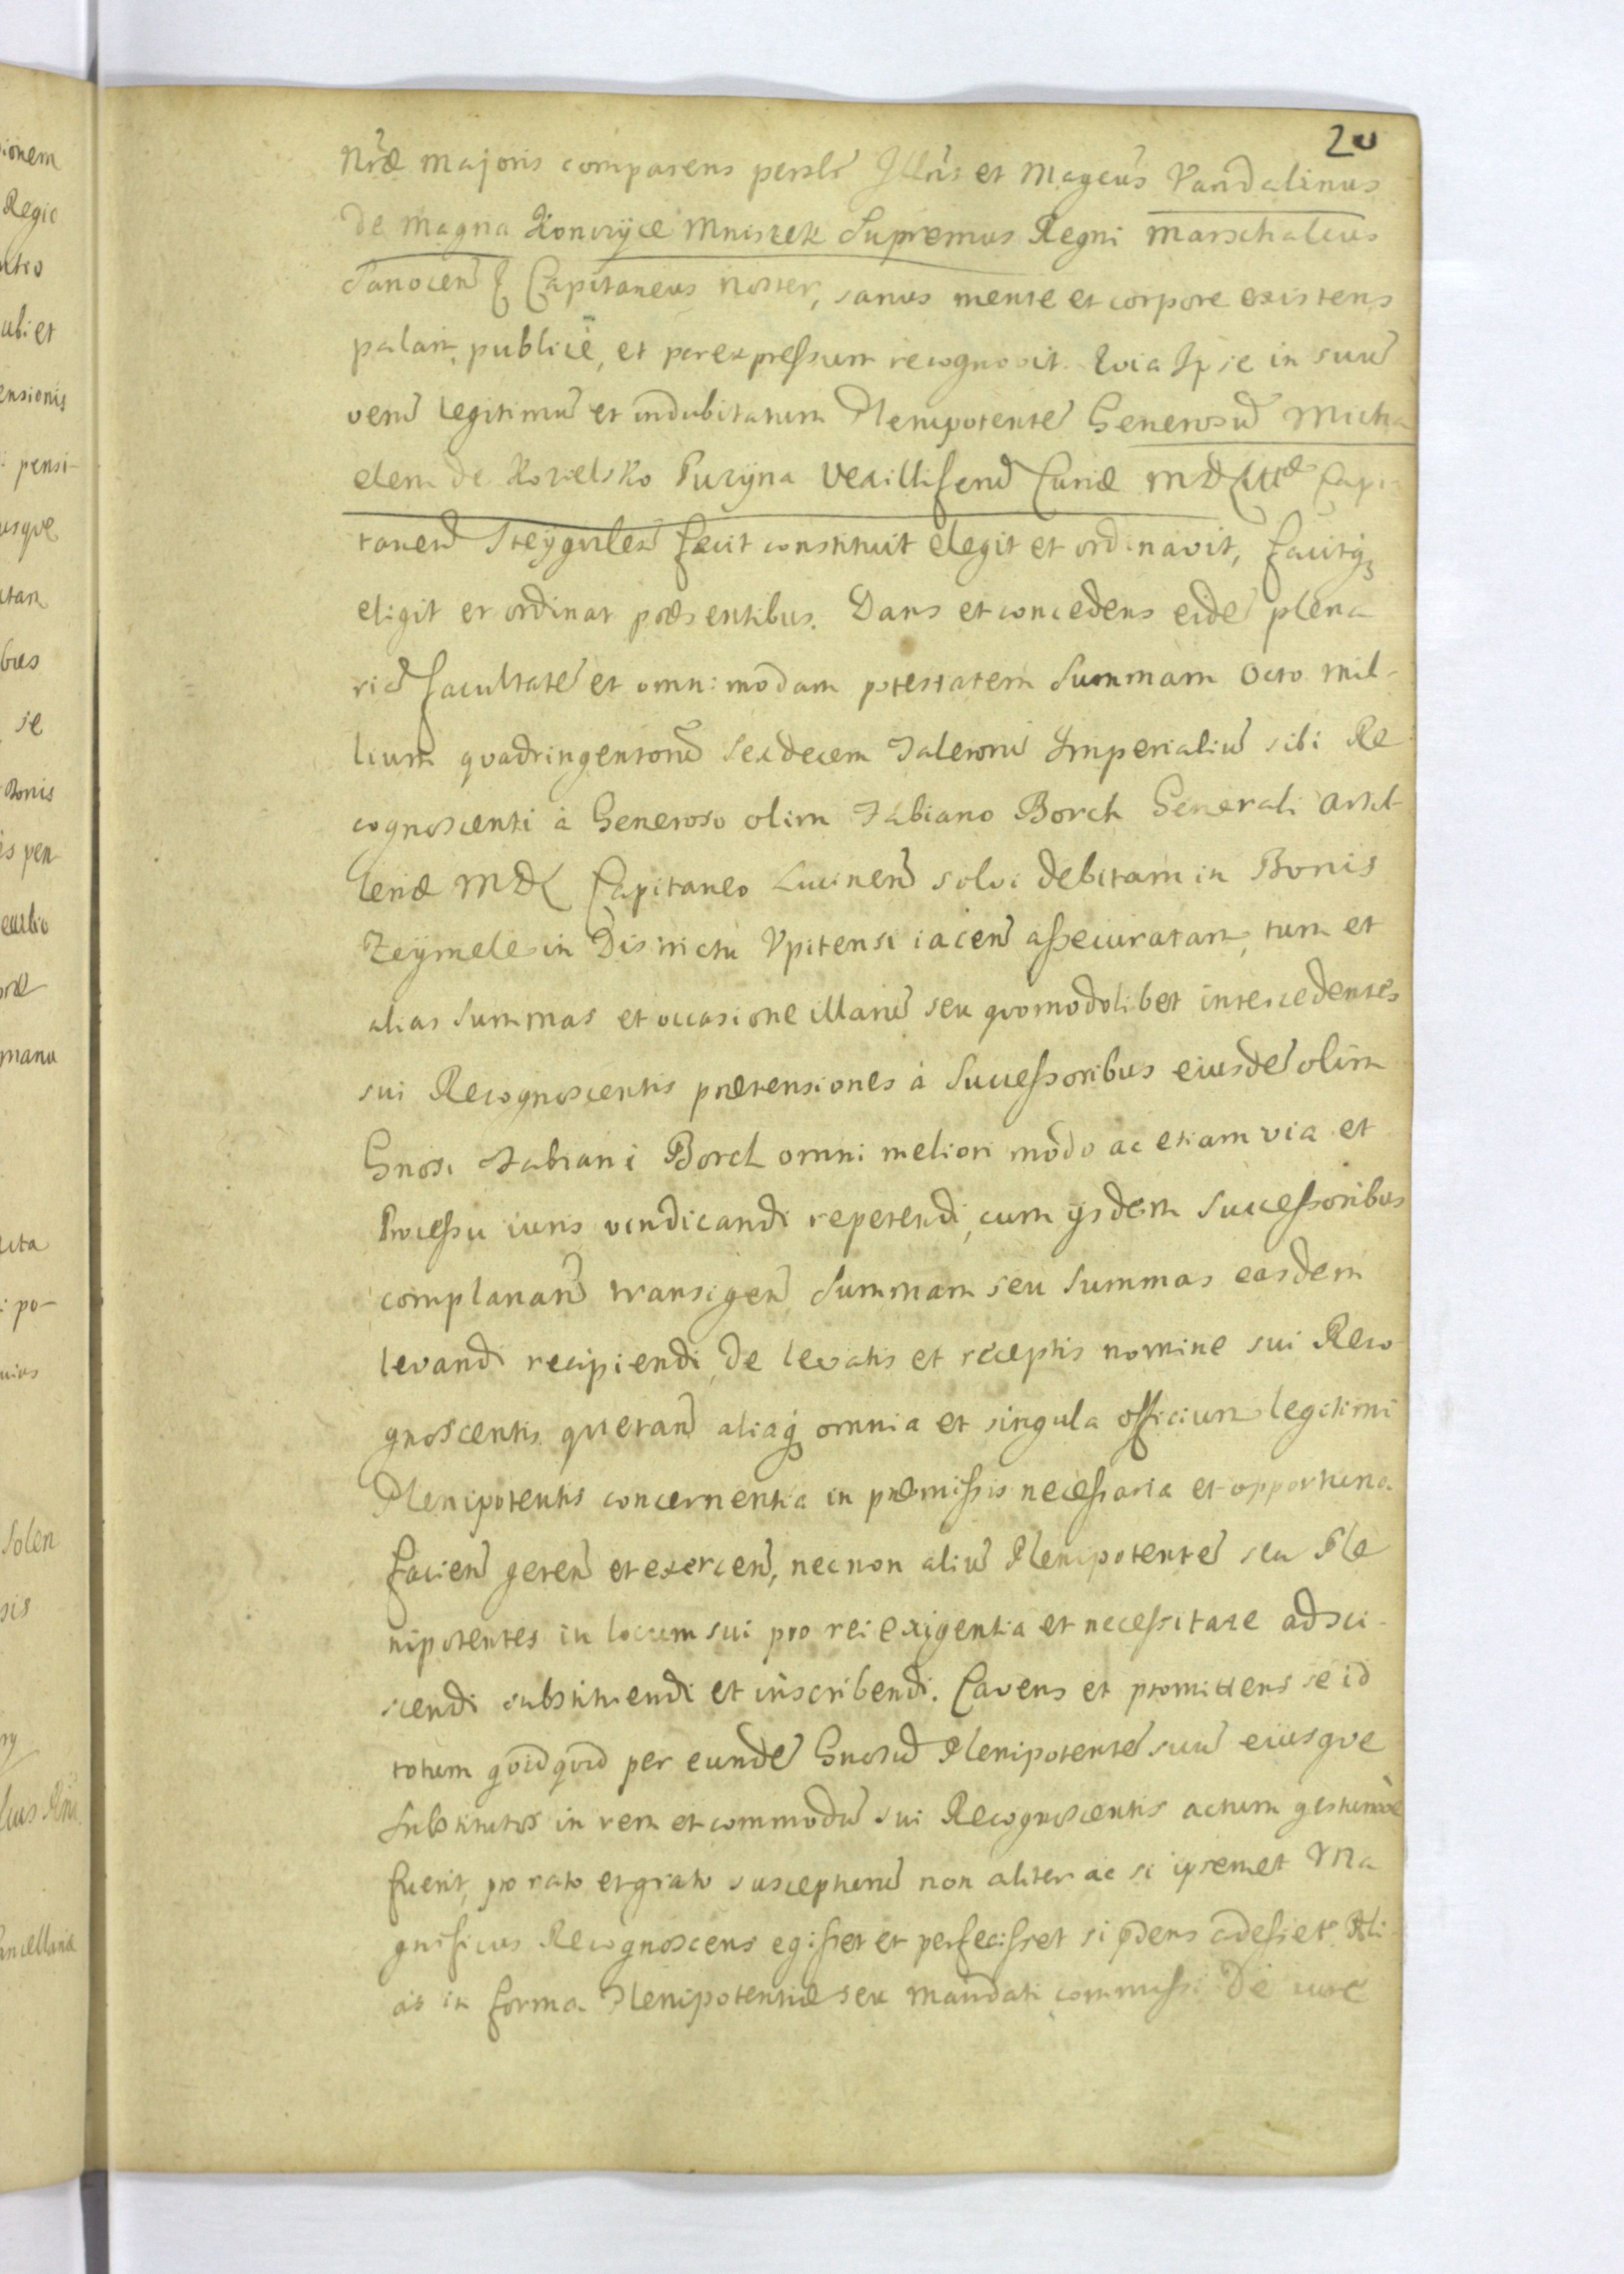 20
Nrae Majoris comparens persłr Illris et Magcus Vandalinus
de magna Konczyce Mniszek Supremus Regni Marschalcus
Sanocen & Capitaneus noster, sanus mente et corpore existens
palam, publice, et per expressum recognovit. Quia Ipse in suũ
verũ legitimũ et indubitatum Plenipotentẽ Generosũ Micha
elem de Kozielsko Puzyna Vexilliferũ Curiae M D Littae Capi
taneũ Steygvilen fecit constituit elegit et ordinavit, facitq3
eligit et ordinat praesentibus. Dans et concedens eidẽ plena
riã facultatẽ et omnimodam potestatem Summam Octo mil-
lium quadringentorũ sexdecem Talerorũ Imperialiũ sibi Re
cognoscenti à Generoso olim Fabiano Borch Generali Artil
leriae M D L Capitaneo Lucinen solvi debitam in Bonis
Zeymele in Districtu Vpitensi iacen assecuratam, tum et
alias Summas et occasione illarũ seu quomodolibet intercedentes
sui Recognoscentis praetensiones à Successoribus eiusdẽ olim
Gnosi Fabiani Borch omni meliori modo ac etiam via et
Processu iuris vindicandi repetendi, cum ijsdem Successoribus
complanan transigen Summam seu Summas easdem
levandi recipiendi, de levatis et receptis nomine sui Reco
gnoscentis quetan aliaq omnia et singula officium legitimi
Plenipotentis concernentia in praemissis necessaria et opportuna
facien geren et exercen, nec non aliũ Plenipotentẽ seu Ple
nipotentes in locum sui pro rei exigentia et necessitate adsci-
scendi substituendi et inscribendi. Cavens et promittens se id
totum quidquid per eundẽ Gnosũ Plenipotentẽ suũ eiusque
Substitutos in rem et commodũ sui Recognoscentis actum gestumvè
fuerit, pro rato et grato suscepturũ non aliter ac si ipsemet Ma
gnificus Recognoscens egisset et perfecisset si pdens adesset Ali
as in forma Plenipotentiae seu mandati commissi De iure